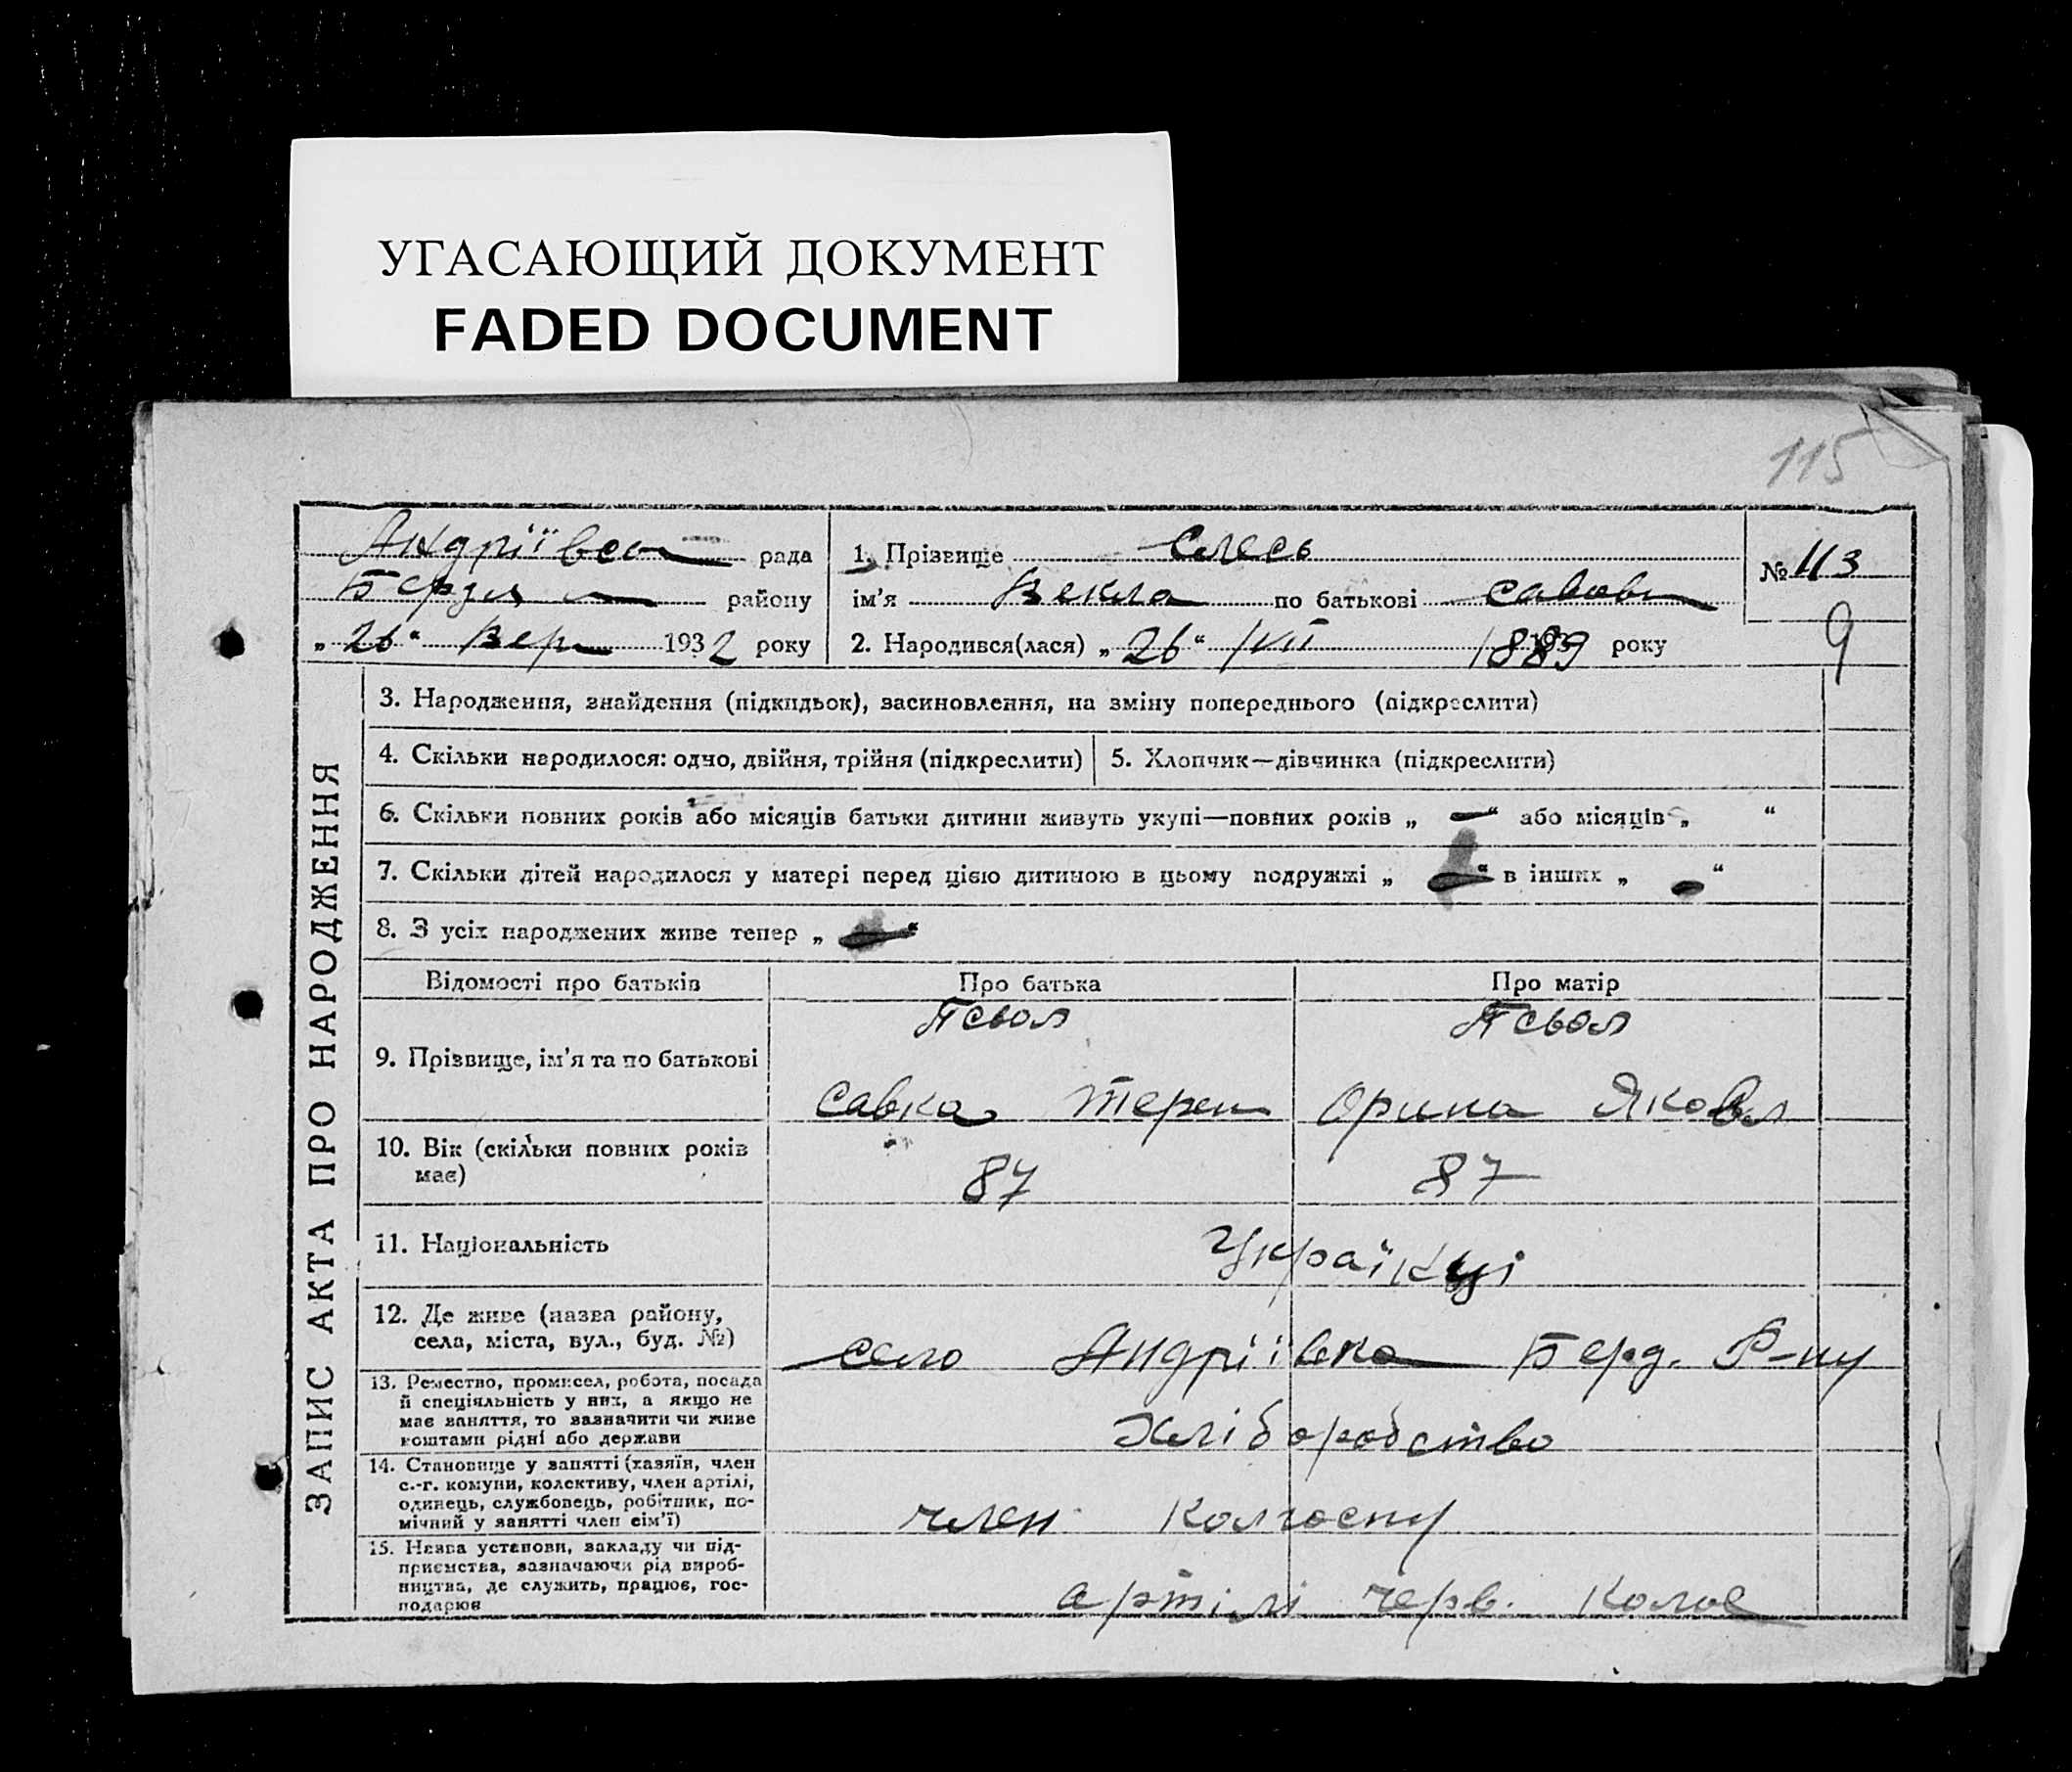 УГАСАЮЩИЙ ДОКУМЕНТ
FADED DOCUMENT
115
Андріївсь рада
Бердян району
„26“ Вер 1932 року
1. Прізвище Слесь
ім'я Векла по батькові Савовн
2. Народився(лася) „26“ /VII 1889 року
№ 113
9
ЗАПИС АКТА ПРО НАРОДЖЕННЯ
3. Народження, знайдення (підкидьок), засиновлення, на зміну попереднього (підкреслити)
4. Скільки народилося: одно, двійня, трійня (підкреслити)
5. Хлопчик—дівчинка (підкреслити)
6. Скільки повних років або місяців батьки дитини живуть укупі—повних років „ —“ або місяців „ “
7. Скільки дітей народилося у матері перед цією дитиною в цьому подружжі „ —“ в інших „ —“
8. З усіх народжених живе тепер „ —“
Відомості про батьків
Про батька
Про матір
9. Прізвище, ім'я та по батькові
Псьол
Савка Терен
Псьол
Орина Яковл
10. Вік (скільки повних років
має)
87
87
11. Національність
Українці
12. Де живе (назва району,
села, міста, вул., буд. №)
село Андріївка Берд. Р-ну
13. Ремество, промисел, робота, посада
й спеціяльність у них, а якщо не
має заняття, то зазначити чи живе
коштами рідні або держави
Хліборобство
14. Становище у занятті (хазяїн, член
с.-г. комуни, колективу, член артілі,
одинець, службовець, робітник, по-
мічний у занятті член сім'ї)
член колгоспу
15. Назва установи, закладу чи під-
приємства, зазначаючи рід вироб-
ництва, де служить, працює, гос-
подарює
артілі черв. Колос